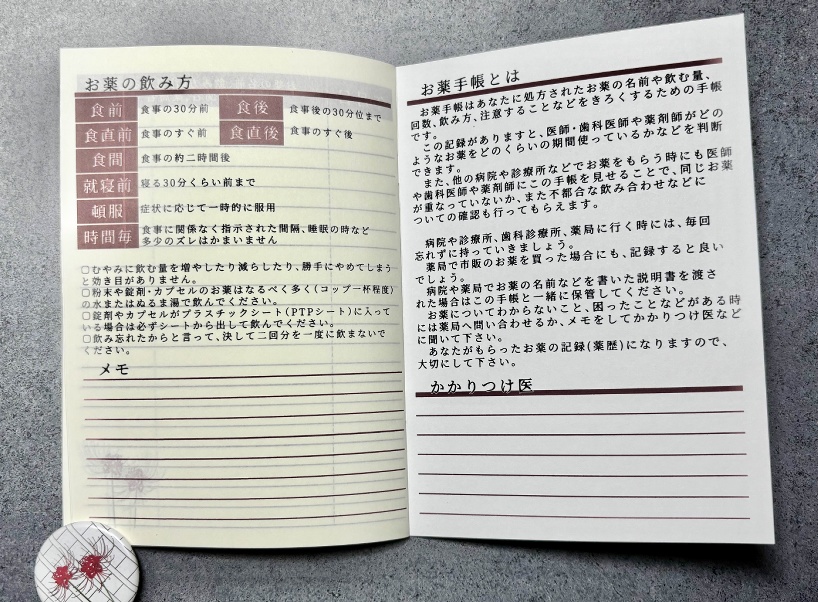 お薬の飲み方
食前 食事の30分前 食後 食事後の30分位まで
食直前 食事のすぐ前 食直後 食事のすぐ後
食間 食事の約二時間後
就寝前 寝る30分くらい前まで
頓服 症状に応じて一時的に服用
時間毎 食事に関係なく指示された間隔、睡眠の時など
多少のズレはかまいません
□むやみに飲む量を増やしたり減らしたり、勝手にやめてしまう
と効き目がありません。
□粉末や錠剤・カプセルのお薬はなるべく多く(コップ一杯程度)
の水またはぬるま湯で飲んでください。
□錠剤やカプセルがプラスチックシート(PTPシート)に入って
いる場合は必ずシートから出して飲んでください。
□飲み忘れたからと言って、決して二回分を一度に飲まないで
ください。
メモ
お薬手帳とは
お薬手帳はあなたに処方されたお薬の名前や飲む量、
回数、飲み方、注意することなどをきろくするための手帳
です。
この記録がありますと、医師・歯科医師や薬剤師がどの
ようなお薬をどのくらいの期間使っているかなどを判断
できます。
また、他の病院や診療所などでお薬をもらう時にも医師
や歯科医師や薬剤師にこの手帳を見せることで、同じお薬
が重なっていないか、また不都合な飲み合わせなどに
ついての確認も行ってもらえます。
病院や診療所、歯科診療所、薬局に行く時には、毎回
忘れずに持っていきましょう。
薬局で市販のお薬を買った場合にも、記録すると良い
でしょう。
病院や薬局でお薬の名前などを書いた説明書を渡さ
れた場合はこの手帳と一緒に保管してください。
お薬についてわからないこと、困ったことなどがある時
には薬局へ問い合わせるか、メモをしてかかりつけ医など
に聞いて下さい。
あなたがもらったお薬の記録(薬歴)になりますので、
大切にして下さい。
かかりつけ医